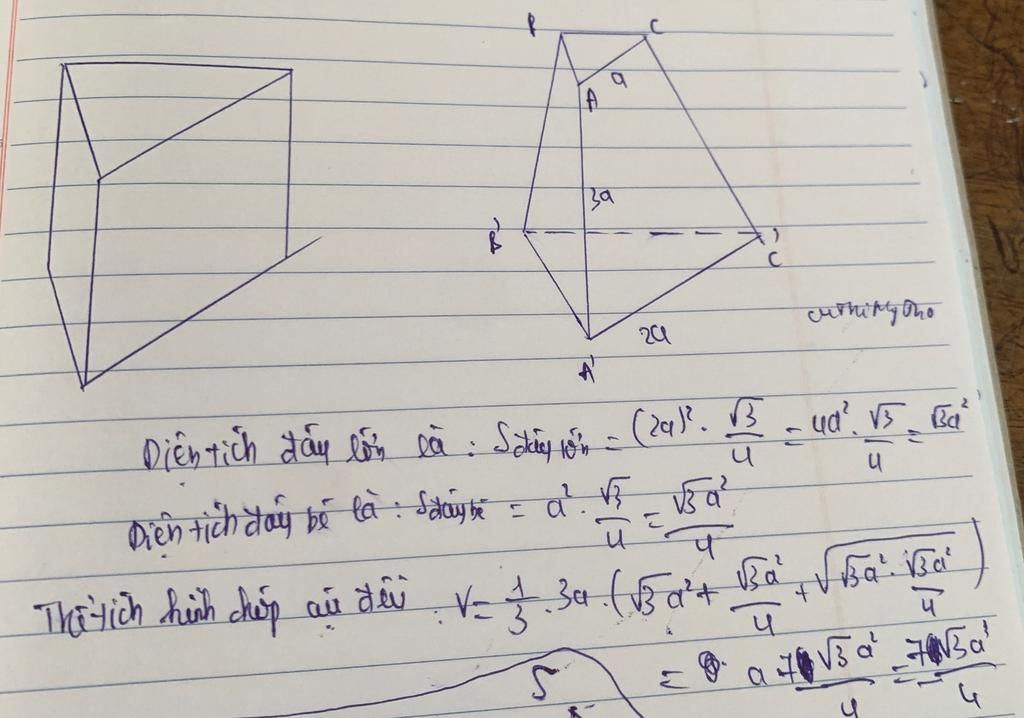 B C
a
A
3a
B' C'
2a
A'
Diện tích đáy lớn là : Sđáy lớn = (2a)² · √3/4 = 4a² · √3/4 = √3a²
Diện tích đáy bé là : Sđáy bé = a² · √3/4 = √3a²/4
Thể tích hình chóp cụt đều : V = 1/3 . 3a . (√3a² + √3a²/4 + √(√3a² · √3a²/4))
= a 7√3a²/4 = 7√3a³/4
S